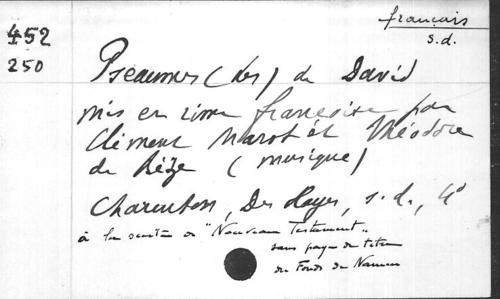 français
s.d.
452
250
Pseaumes (les) de David
mis en rime françoise par
Clément Marot et Théodore
de Bèze (musique)
Charenton, Des Hayes, s.d., 4°
à la suite du "Nouveau Testament"
sans page de titre
du Fonds de Namur